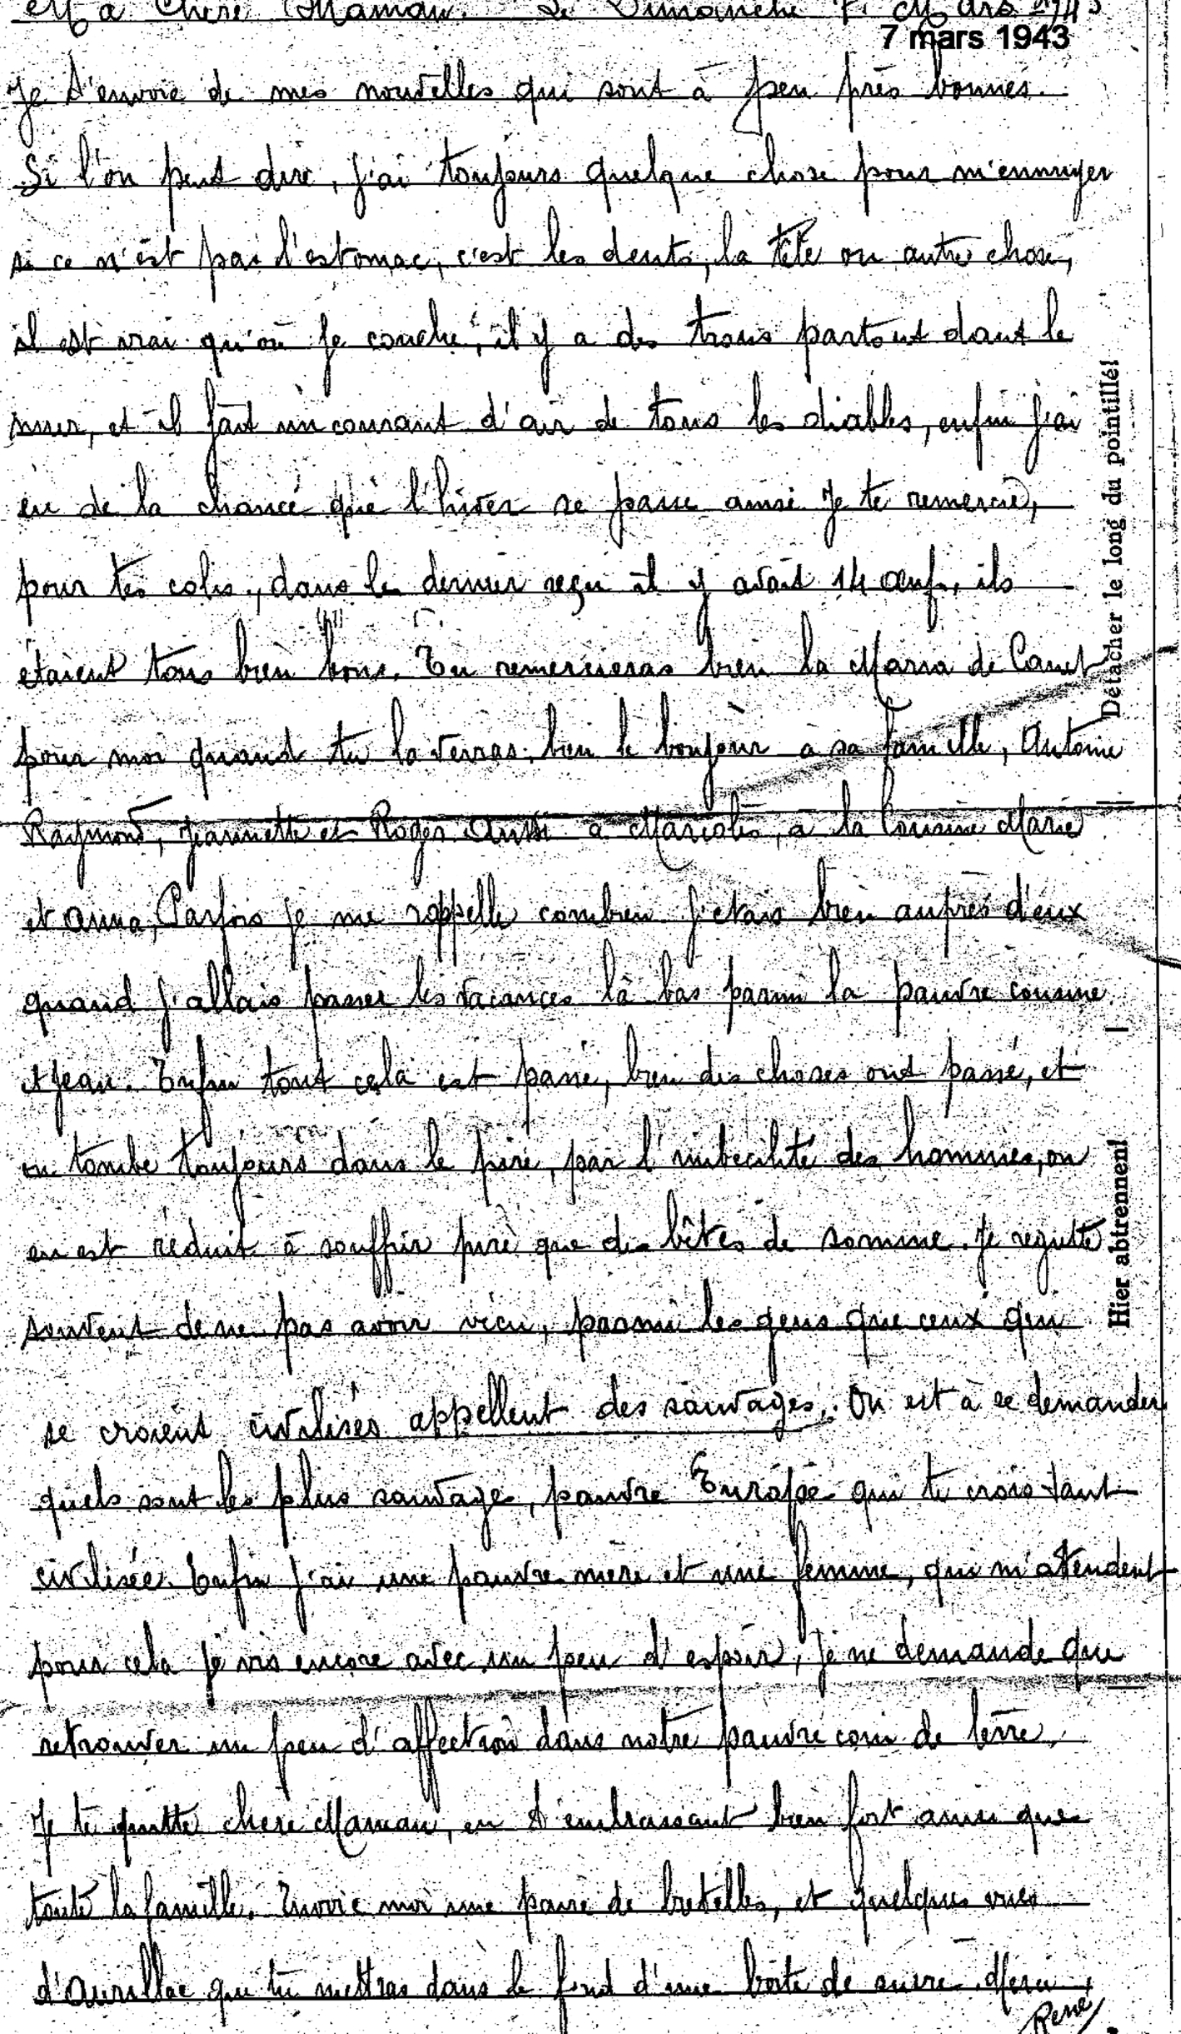 Ma Chère Maman. Le Dimanche 7. Mars 1943
7 mars 1943
Je t'envoie de mes nouvelles qui sont à peu près bonnes.
Si l'on peut dire, j'ai toujours quelque chose pour m'ennuyer
si ce n'est pas l'estomac, c'est les dents, la tête ou autre chose,
il est vrai qu'où je couche, il y a des trous partout dans le
mur, et il fait un courant d'air de tous les diables, enfin j'ai
eu de la chance que l'hiver se passe ainsi. Je te remercie,
pour tes colis, dans le dernier reçu il y avait 14 œufs, ils
étaient tous bien bons. Tu remercieras bien la Maria de Canet
pour moi quand tu la verras. bien le bonjour a sa famille, Antoine
Raymond, Jeannette et Roger. Aussi a Marcolès, a la Cousine Marie
et Anna, Parfois je me rappelle combien j'étais bien auprès d'eux
quand j'allais passer les vacances là bas parmi la pauvre cousine
et Jean. Enfin tout cela est passé, bien des choses ont passé, et
on tombe toujours dans le pire, par l'imbécilité des hommes, on
en est réduit à souffrir pire que des bêtes de somme. Je regrette
souvent de ne pas avoir vécu, parmi les gens que ceux qui
se croient civilisés appellent des sauvages. On est à se demander
quels sont les plus sauvages, pauvre Europe qui te crois tant
civilisée. Enfin j'ai une pauvre mère et une femme, qui m'attendent
pour cela je vis encore avec un peu d'espoir, je ne demande que
retrouver un peu d'affection dans notre pauvre coin de terre.
Je te quitte chère Maman, en t'embrassant bien fort ainsi que
toute la famille. Envoie moi une paire de bretelles, et quelques vues
d'Aurillac que tu mettras dans le fond d'une boite de sucre. Merci,
René
Détacher le long du pointillé!
Hier abtrennen!